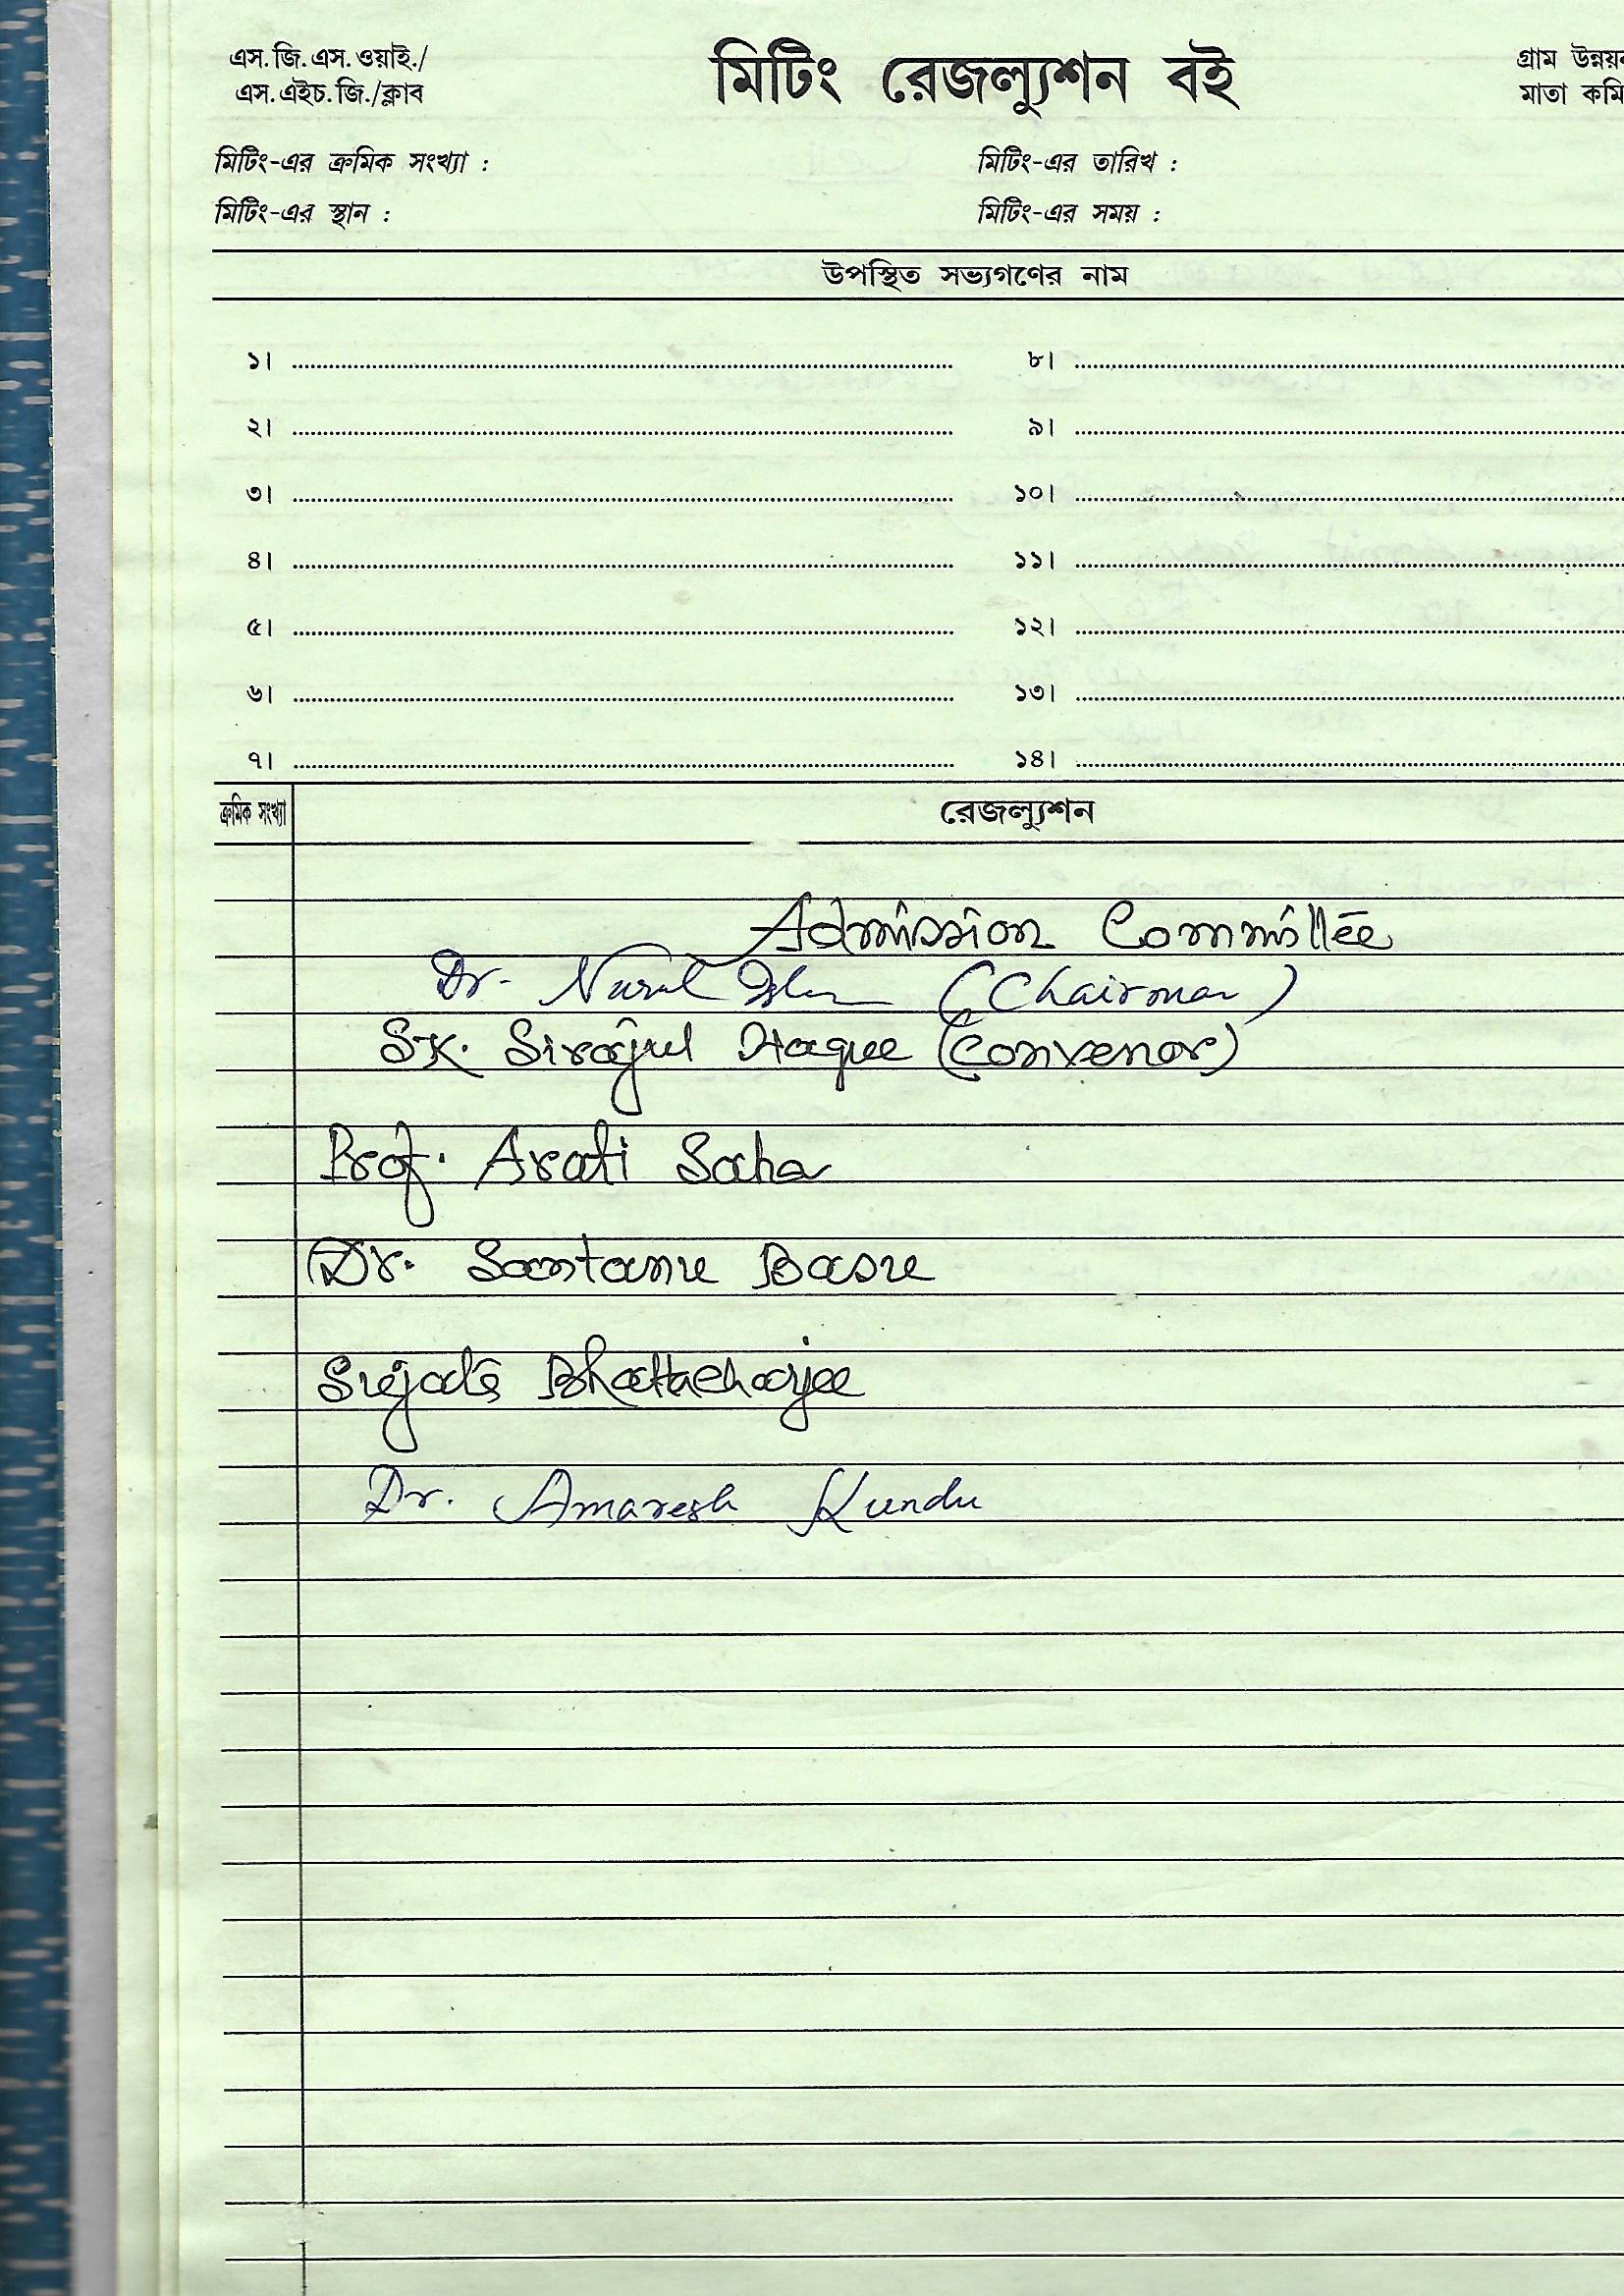 এস. জি. এস. ওয়াই./
এস. এইচ. জি./ক্লাব
মিটিং রেজল্যুশন বই
গ্রাম উন্নয়ন
মাতা কমি
মিটিং-এর ক্রমিক সংখ্যা :
মিটিং-এর তারিখ :
মিটিং-এর স্থান :
মিটিং-এর সময় :
উপস্থিত সভ্যগণের নাম
১।
২।
৩।
৪।
৫।
৬।
৭।
৮।
৯।
১০।
১১।
১২।
১৩।
১৪।
ক্রমিক সংখ্যা
রেজল্যুশন
Admission Committee
Dr. Nurul Islam (Chairman)
SK. Sirajul Haque (Convenor)
Prof. Arati Saha
Dr. Santanu Basu
Sujata Bhattacharjee
Dr. Amaresh Kundu